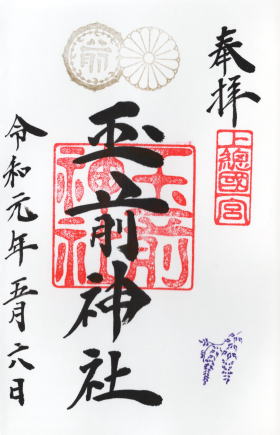 奉拝
上總國一宮
玉前神社
玉前神社
令和元年五月六日